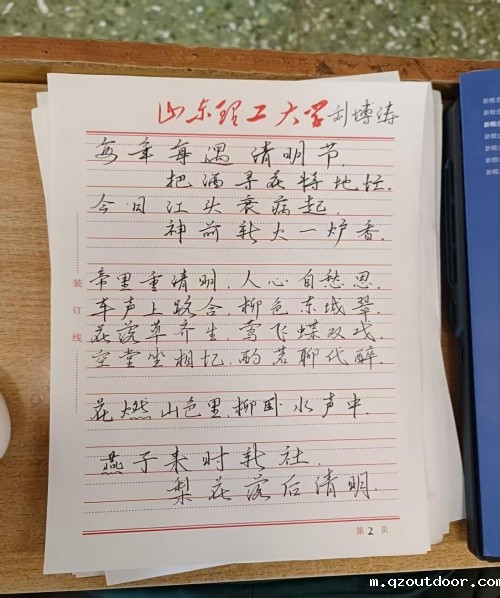 山东理工大学 刘博涛
每年每遇清明节,
把酒寻花特地忙.
今日江头衰病起,
神前新火一炉香.
帝里重清明,人心自愁思.
车声上路合,柳色东城翠.
花落草齐生,莺飞蝶双戏.
空堂坐相忆,酌茗聊代醉.
花燃山色里,柳卧水声中.
燕子来时新社,
梨花落后清明.
装订线
第2页
新概念
新概念
新概念
新概念
新概念
新概念
m.qzoutdoor.com